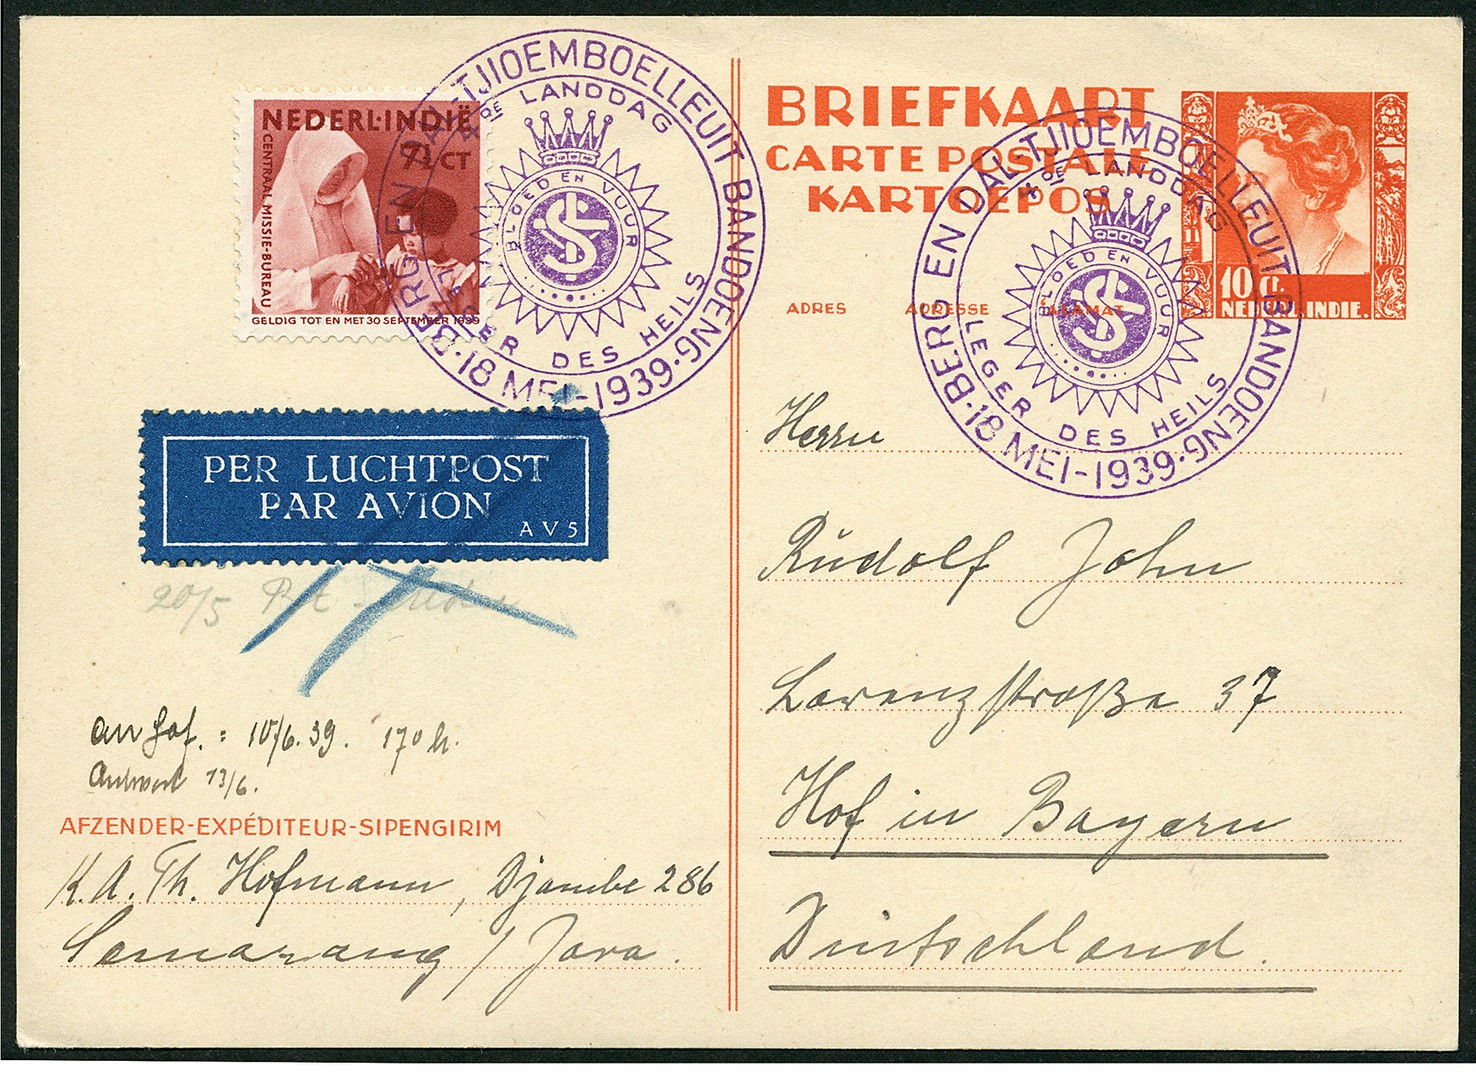 NEDERL·INDIË
7½ CT
CENTRAAL MISSIE-BUREAU
GELDIG TOT EN MET 30 SEPTEMBER 1939
BERG EN DAL-TJIOEMBOELLEUIT BANDOENG·
·18 MEI-1939·
4DE LANDDAG
LEGER DES HEILS
BLOED EN VUUR
S
BRIEFKAART
CARTE POSTALE
KARTOEPOS
10 CT.
NEDERL. INDIE.
BERG EN DAL-TJIOEMBOELLEUIT BANDOENG·
·18 MEI-1939·
4DE LANDDAG
LEGER DES HEILS
BLOED EN VUUR
S
ADRES ADRESSE ALAMAT
PER LUCHTPOST
PAR AVION
AV5
20/5
an Hof. : 10/6.39. 170 h.
Antwort 13/6.
AFZENDER-EXPÉDITEUR-SIPENGIRIM
K. A. Th. Hofmann, Djambe 286
Semarang / Java.
Herrn
Rudolf John
Lorenzstraße 37
Hof in Bayern
Deutschland.